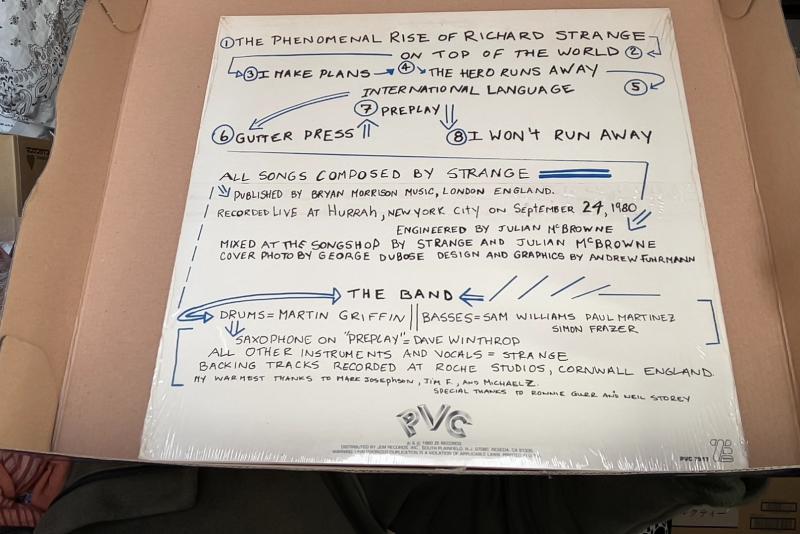 ① THE PHENOMENAL RISE OF RICHARD STRANGE
ON TOP OF THE WORLD ②
③ I MAKE PLANS ④ THE HERO RUNS AWAY
INTERNATIONAL LANGUAGE ⑤
⑦ PREPLAY
⑥ GUTTER PRESS ⑧ I WON'T RUN AWAY
ALL SONGS COMPOSED BY STRANGE
PUBLISHED BY BRYAN MORRISON MUSIC, LONDON ENGLAND.
RECORDED LIVE AT HURRAH, NEW YORK CITY ON SEPTEMBER 24, 1980
ENGINEERED BY JULIAN McBROWNE
MIXED AT THE SONGSHOP BY STRANGE AND JULIAN McBROWNE
COVER PHOTO BY GEORGE DUBOSE DESIGN AND GRAPHICS BY ANDREW FUHRMANN
THE BAND
DRUMS = MARTIN GRIFFIN || BASSES = SAM WILLIAMS PAUL MARTINEZ
SIMON FRAZER
SAXOPHONE ON "PREPLAY" = DAVE WINTHROP
ALL OTHER INSTRUMENTS AND VOCALS = STRANGE
BACKING TRACKS RECORDED AT ROCHE STUDIOS, CORNWALL ENGLAND.
MY WARMEST THANKS TO MARK JOSEPHSON, JIM F., AND MICHAEL Z.
SPECIAL THANKS TO RONNIE GURR AND NEIL STOREY
PVC
℗ & © 1980 ZE RECORDS
DISTRIBUTED BY JEM RECORDS, INC. SOUTH PLAINFIELD, N.J. 07080 RESEDA, CA 91335
WARNING: UNAUTHORIZED DUPLICATION IS A VIOLATION OF APPLICABLE LAWS. PRINTED
PVC 7917 ZE